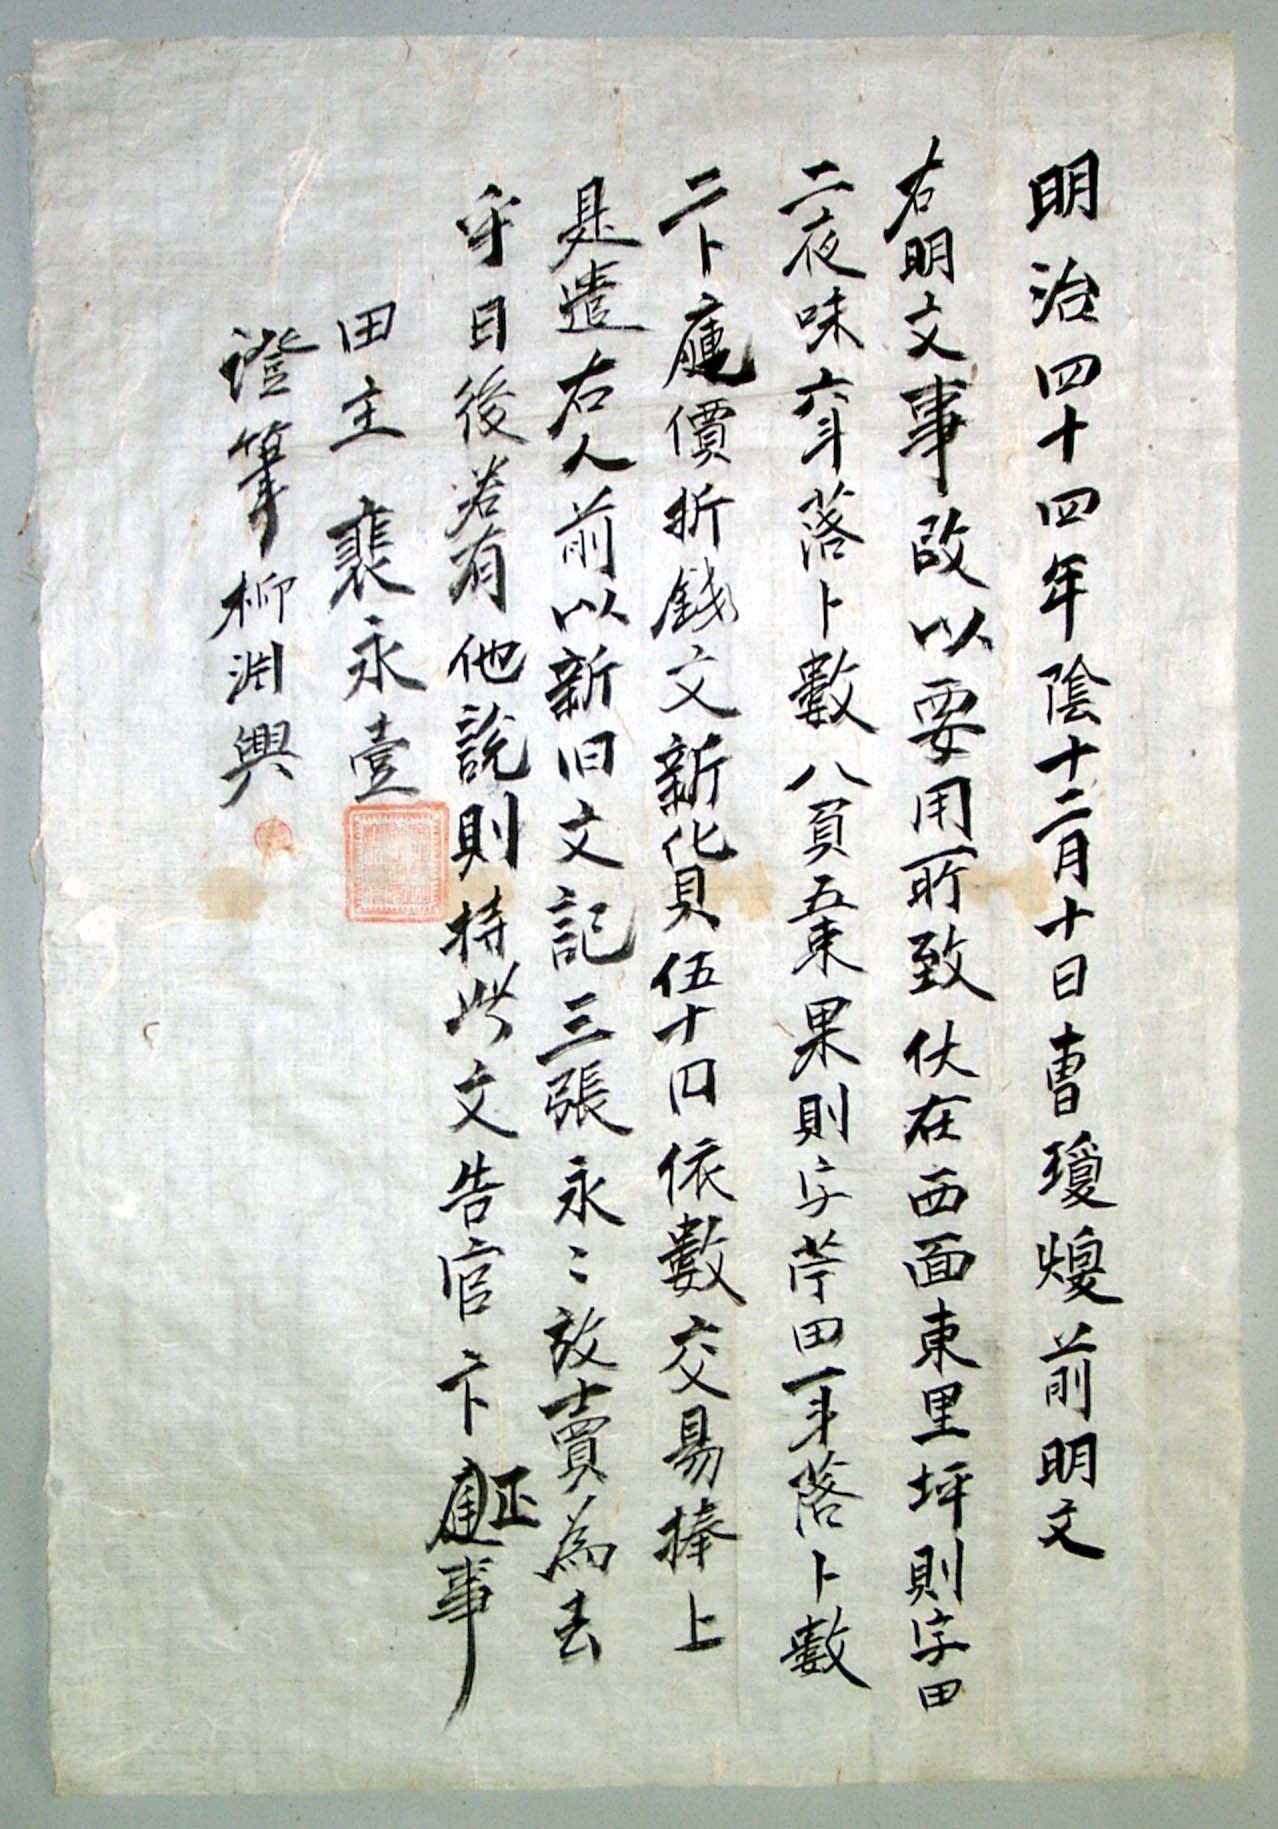 明治四十四年陰十二月十日曺瓊煥前明文
右明文事段以要用所致伏在西面東里坪則字田
二夜味六斗落卜數八負五束果則字苧田一斗落卜數
二卜庫價折錢文新化貝伍十円依數交易捧上
是遣右人前以新旧文記三張永〻放賣為去
乎日後若有他說則持此文告官卞正事
田主 裵永壹
證筆 柳淵興